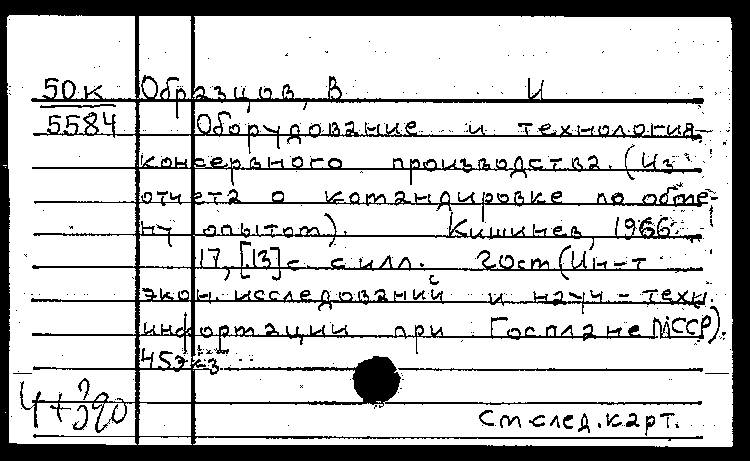 50к Образцов, В И
5584 Оборудование и технология
консервного производства. (Из
отчета о командировке по обме-
ну опытом). Кишинев, 1966.
17, [13] с. с илл. 20 см (Ин-т
экон. исследований и науч-техн.
информации при Госплане МССР).
45 экз
См след. карт.